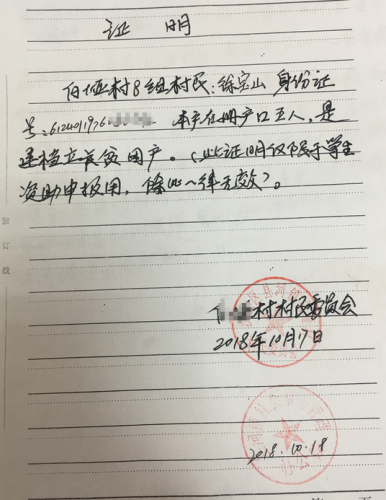 证 明
村8组村民:徐宝山 身份证
号:6124011976 本户在册户口五人,是
建档立卡贫困户。(此证明仅限于学生
资助申报用,除此一律无效)。
村村民委员会
2018年10月17日
2018.10.18